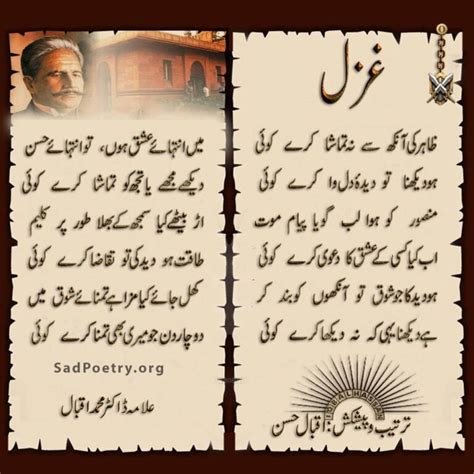 غزل
ظاہر کی آنکھ سے نہ تماشا کرے کوئی
ہو دیکھنا تو دیدۂ دل وا کرے کوئی
منصور کو ہوا لب گویا پیام موت
اب کیا کسی کے عشق کا دعویٰ کرے کوئی
ہو دید کا جو شوق تو آنکھوں کو بند کر
ہے دیکھنا یہی کہ نہ دیکھا کرے کوئی
IQBALHASSAN
ترتیب و پیشکش : اقبال حسن
میں انتہائے عشق ہوں، تو انتہائے حسن
دیکھے مجھے یا تجھ کو تماشا کرے کوئی
اڑ بیٹھے کیا سمجھ کے بھلا طور پر کلیم
طاقت ہو دید کی تو تقاضا کرے کوئی
کھل جائے کیا مزا ہے تمنائے شوق میں
دو چار دن جو میری بھی تمنا کرے کوئی
SadPoetry.org
علامہ ڈاکٹر محمد اقبال